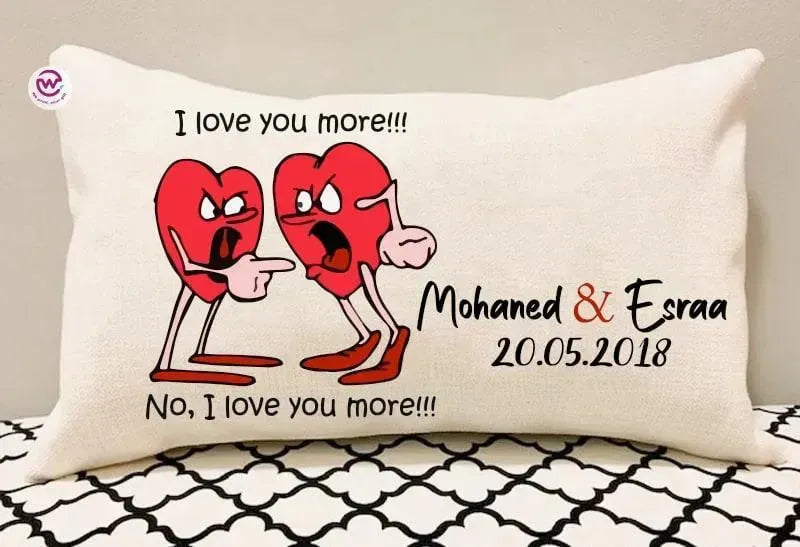 I love you more!!!
Mohaned & Esraa
20.05.2018
No, I love you more!!!